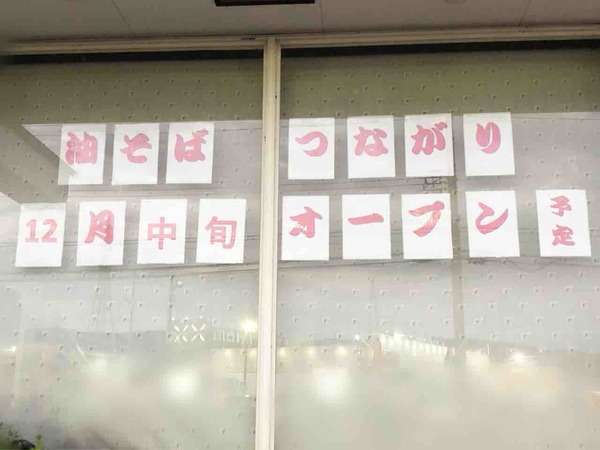 油そば つながり
12月中旬 オープン 予定